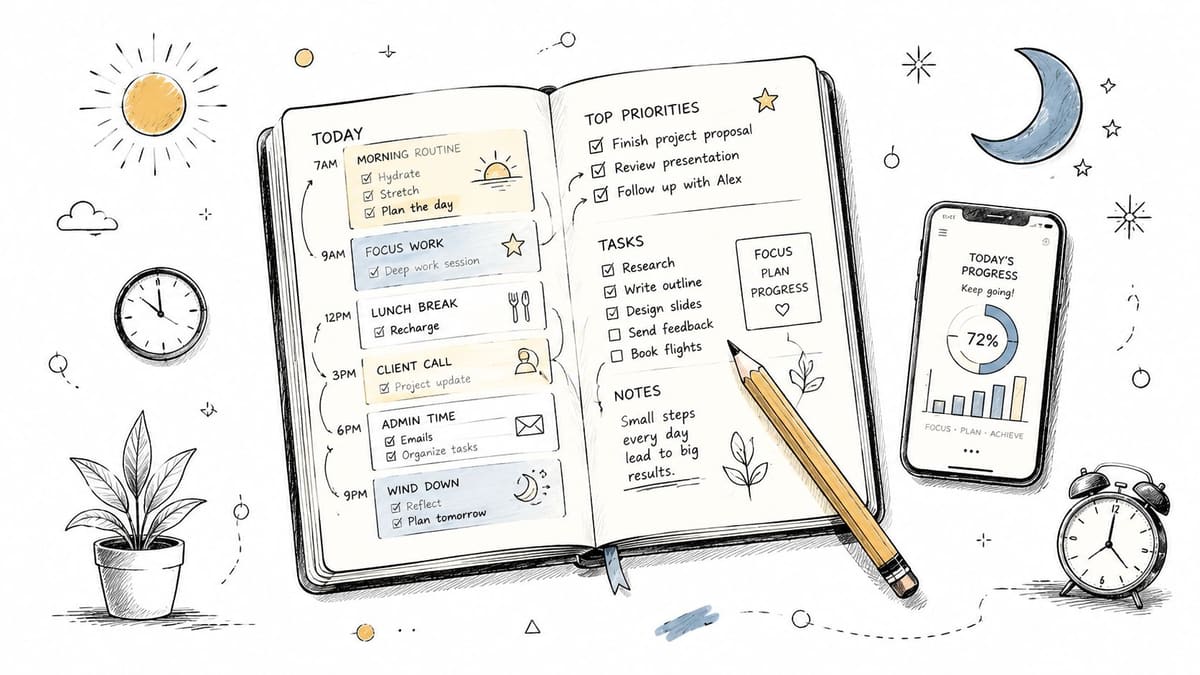 TODAY
7AM
MORNING ROUTINE
Hydrate
Stretch
Plan the day
9AM
FOCUS WORK
Deep work session
12PM
LUNCH BREAK
Recharge
3PM
CLIENT CALL
Project update
6PM
ADMIN TIME
Emails
Organize tasks
9PM
WIND DOWN
Reflect
Plan tomorrow
TOP PRIORITIES
Finish project proposal
Review presentation
Follow up with Alex
TASKS
Research
Write outline
Design slides
Send feedback
Book flights
FOCUS
PLAN
PROGRESS
NOTES
Small steps
every day
lead to big
results.
TODAY'S
PROGRESS
Keep going!
72%
FOCUS • PLAN • ACHIEVE
12
6